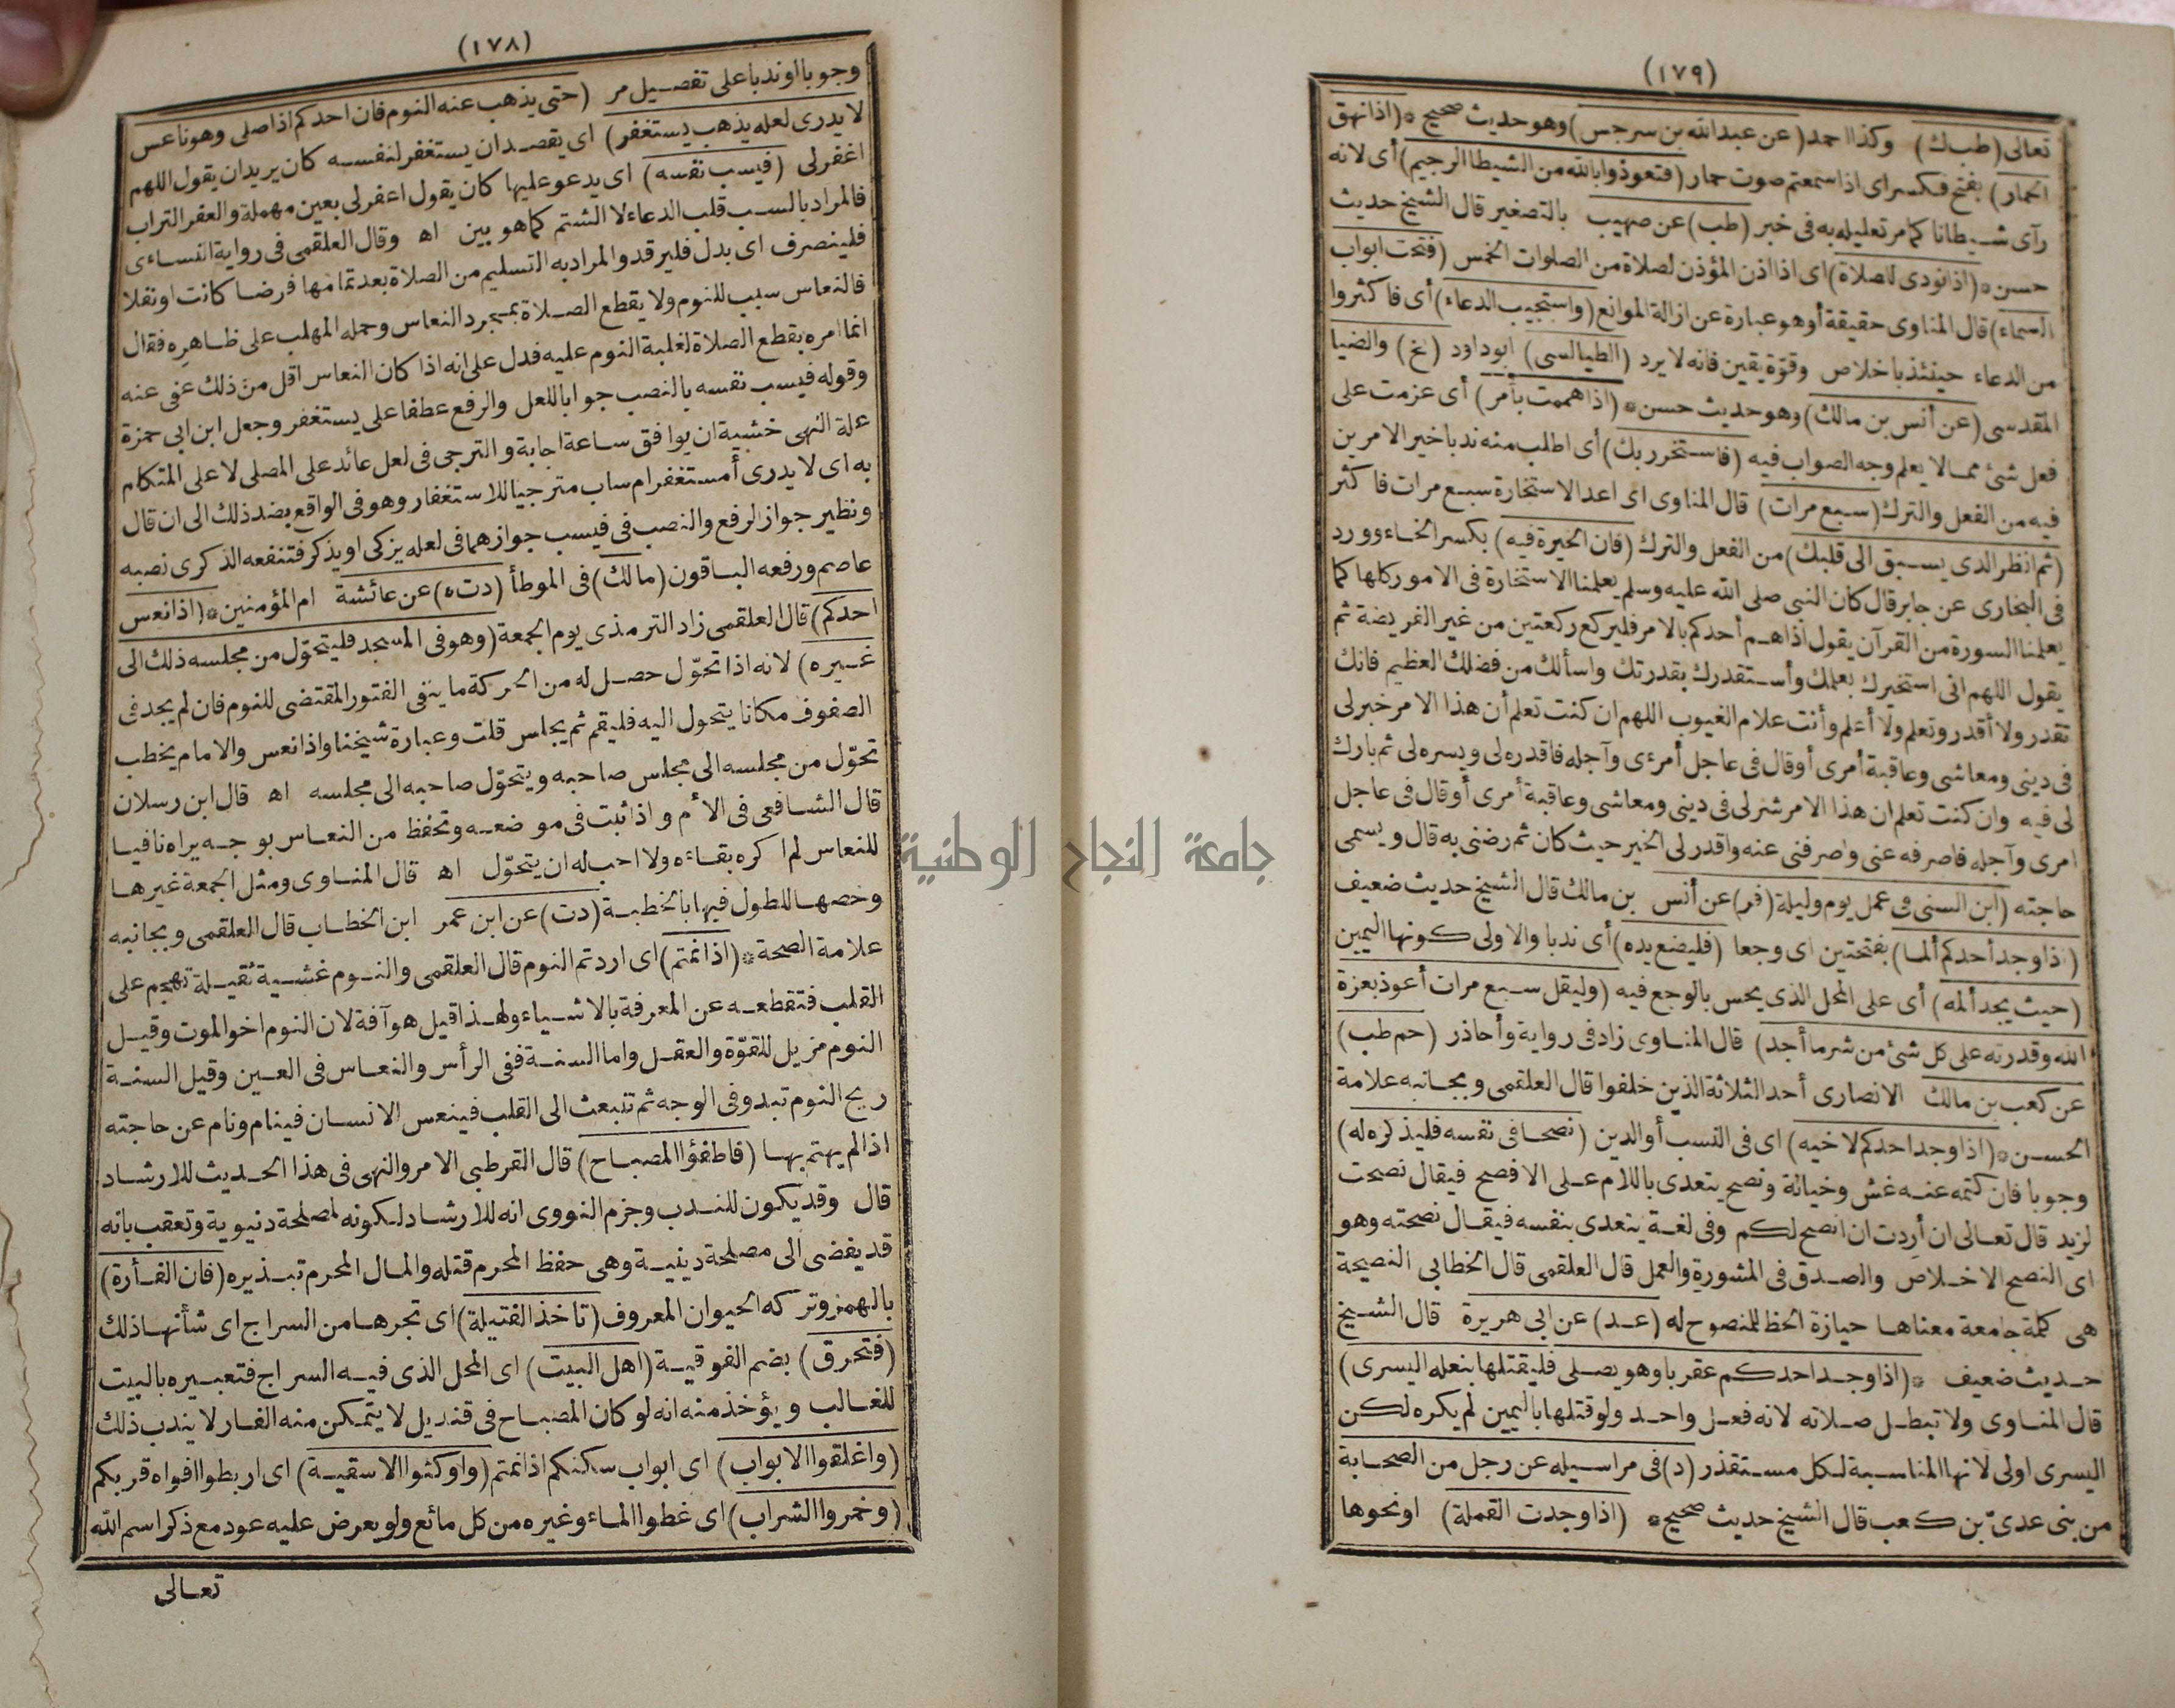 (١٧٨)
وجوبا اوندبا على تفصيل مر (حتى يذهب عنه النوم فان احدكم اذا صلى وهو ناعس
لا يدرى لعله يذهب يستغفر) اى يقصد ان يستغفر لنفسه كان يريد ان يقول اللهم
اغفرلى (فيسب نفسه) اى يدعو عليها كان يقول اعفرلى بعين مهملة والعفر التراب
فالمراد بالسب قلب الدعاء لا الشتم كما هو بين اه وقال العلقمى فى رواية النساءى
فلينصرف اى بدل فليرقد والمراد به التسليم من الصلاة بعد تمامها فرضا كانت او نفلا
فالنعاس سبب للنوم ولا يقطع الصلاة بمجرد النعاس وحمله المهلب على ظاهره فقال
انما امره بقطع الصلاة لغلبة النوم عليه فدل على انه اذا كان النعاس اقل من ذلك عفى عنه
وقوله فيسب نفسه بالنصب جوابا للعل والرفع عطفا على يستغفر وجعل ابن ابى حمزة
علة النهى خشية ان يوافق ساعة اجابة والترجى فى لعل عائد على المصلى لا على المتكلم
به اى لا يدرى أمستغفر ام ساب مترجيا للاستغفار وهو فى الواقع بضد ذلك الى ان قال
ونظير جواز الرفع والنصب فى فيسب جوازهما فى لعله يزكى او يذكر فتنفعه الذكرى نصبه
عاصم ورفعه الباقون (مالك) فى الموطأ (دت ه) عن عائشة ام المؤمنين * (اذا نعس
احدكم) قال العلقمى زاد الترمذى يوم الجمعة (وهو فى المسجد فليتحوّل من مجلسه ذلك الى
غيره) لانه اذا تحوّل حصل له من الحركة ما ينفى الفتور المقتضى للنوم فان لم يجد فى
الصفوف مكانا يتحول اليه فليقم ثم يجلس قلت وعبارة شيخنا واذا نعس والامام يخطب
تحوّل من مجلسه الى مجلس صاحبه ويتحوّل صاحبه الى مجلسه اه قال ابن رسلان
قال الشافعى فى الأم واذا ثبت فى موضعه وتحفظ من النعاس بوجه يراه نافيا
للنعاس لم اكره بقاءه ولا احب له ان يتحوّل اه قال المناوى ومثل الجمعة غيرها
وخصها للطول فيها بالخطبة (دت) عن ابن عمر ابن الخطاب قال العلقمى وبجانبه
علامة الصحة * (اذا نمتم) اى اردتم النوم قال العلقمى والنوم غشية ثقيلة تهجم على
القلب فتقطعه عن المعرفة بالاشياء ولهذا قيل هو آفة لان النوم اخو الموت وقيل
النوم مزيل للقوّة والعقل واما السنة ففى الرأس والنعاس فى العين وقيل السنة
ريح النوم تبدو فى الوجه ثم تنبعث الى القلب فينعس الانسان فينام ونام عن حاجته
اذا لم يهتم بها (فاطفؤا المصباح) قال القرطبى الامر والنهى فى هذا الحديث للارشاد
قال وقد يكون للندب وجزم النووى انه للارشاد لكونه لمصلحة دنيوية وتعقب بانه
قد يفضى الى مصلحة دينية وهى حفظ المحرم قتله والمال المحرم تبذيره (فان الفأرة)
بالهمز وتركه الحيوان المعروف (تاخذ الفتيلة) اى تجرها من السراج اى شأنها ذلك
(فتحرق) بضم الفوقية (اهل البيت) اى المحل الذى فيه السراج فتعبيره بالبيت
للغالب ويؤخذ منه انه لو كان المصباح فى قنديل لا يتمكن منه الفار لا يندب ذلك
(واغلقوا الابواب) اى ابواب سكنكم اذا نمتم (واوكئوا الاسقية) اى اربطوا افواه قربكم
(وخمروا الشراب) اى غطوا الماء وغيره من كل مائع ولو بعرض عليه عود مع ذكر اسم الله
تعالى
(١٧٩)
تعالى (طب ك) وكذا احمد (عن عبد الله بن سرجس) وهو حديث صحيح * (اذا نهق
الحمار) بفتح فكسر اى اذا سمعتم صوت حمار (فتعوذوا بالله من الشيطا الرجيم) أى لانه
رآى شيطانا كما مر تعليله به فى خبر (طب) عن صهيب بالتصغير قال الشيخ حديث
حسن * (اذا نودى للصلاة) اى اذا اذن المؤذن لصلاة من الصلوات الخمس (فتحت ابواب
السماء) قال المناوى حقيقة أو هو عبارة عن ازالة الموانع (واستجيب الدعاء) أى فاكثروا
من الدعاء حينئذ باخلاص وقوّة يقين فانه لا يرد (الطيالسى) ابو داود (ع) والضيا
المقدسى (عن أنس بن مالك) وهو حديث حسن * (اذا هممت بأمر) أى عزمت على
فعل شئ مما لا يعلم وجه الصواب فيه (فاستخر ربك) أى اطلب منه ندبا خير الامرين
فيه من الفعل والترك (سبع مرات) قال المناوى اى اعد الاستخارة سبع مرات فاكثر
(ثم انظر الذى يسبق الى قلبك) من الفعل والترك (فان الخيرة فيه) بكسر الخاء وورد
فى البخارى عن جابر قال كان النبى صلى الله عليه وسلم يعلمنا الاستخارة فى الامور كلها كما
يعلمنا السورة من القرآن يقول اذا هم أحدكم بالامر فليركع ركعتين من غير الفريضة ثم
يقول اللهم انى استخيرك بعلمك وأستقدرك بقدرتك واسألك من فضلك العظيم فانك
تقدر ولا أقدر وتعلم ولا أعلم وأنت علام الغيوب اللهم ان كنت تعلم أن هذا الامر خير لى
فى دينى ومعاشى وعاقبة أمرى أو قال فى عاجل أمرى وآجله فاقدره لى ويسره لى ثم بارك
لى فيه وان كنت تعلم ان هذا الامر شر لى فى دينى ومعاشى وعاقبة أمرى أو قال فى عاجل
امرى وآجله فاصرفه عنى واصرفنى عنه واقدر لى الخير حيث كان ثم رضنى به قال ويسمى
حاجته (ابن السنى فى عمل يوم وليلة (فر) عن أنس بن مالك قال الشيخ حديث ضعيف
(اذا وجد أحدكم ألما) بفتحتين اى وجعا (فليضع يده) أى ندبا والاولى كونها اليمين
(حيث يجد ألمه) أى على المحل الذى يحس بالوجع فيه (وليقل سبع مرات أعوذ بعزة
الله وقدرته على كل شئ من شر ما أجد) قال المناوى زاد فى رواية وأحاذر (حم طب)
عن كعب بن مالك الانصارى أحد الثلاثة الذين خلفوا قال العلقمى وبجانبه علامة
الحسن * (اذا وجد احدكم لاخيه) اى فى النسب أو الدين (نصحا فى نفسه فليذكره له)
وجوبا فان كتمه عنه غش وخيانة ونصح يتعدى باللام على الافصح فيقال نصحت
لزيد قال تعالى ان أردت ان انصح لكم وفى لغة يتعدى بنفسه فيقال نصحته وهو
اى النصح الاخلاص والصدق فى المشورة والعمل قال العلقمى قال الخطابى النصيحة
هى كلمة جامعة معناها حيازة الحظ للمنصوح له (عد) عن ابى هريرة قال الشيخ
حديث ضعيف * (اذا وجد احدكم عقربا وهو يصلى فليقتلها بنعله اليسرى)
قال المناوى ولا تبطل صلاته لانه فعل واحد ولو قتلها باليمين لم يكره لكن
اليسرى اولى لانها المناسبة لكل مستقذر (د) فى مراسيله عن رجل من الصحابة
من بنى عدىّ بن كعب قال الشيخ حديث صحيح * (اذا وجدت القملة) او نحوها
جامعة النجاح الوطنية